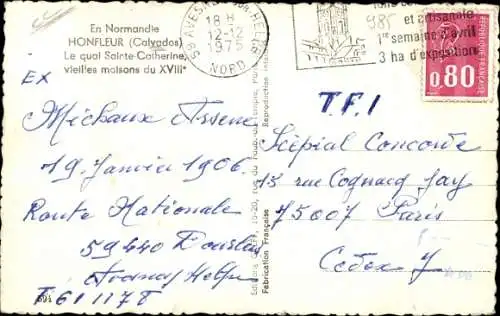 En Normandie
HONFLEUR (Calvados)
Le quai Sainte-Catherine,
vieilles maisons du XVIIIe
59 AVESNES-SUR-HELPE
18 H
12-12
1975
NORD
985
et artisanale
1re semaine d'avril
3 ha d'exposition
0,80
EX
Méchaux Arsene
19. Janvier 1906.
Route Nationale
59440 Dourlers
Avesnes Helpe
T 611178
Fabrication Française
T.F.1
Scépial Concorde
13 rue Cognacq Jay
75007 Paris
Cedex 7